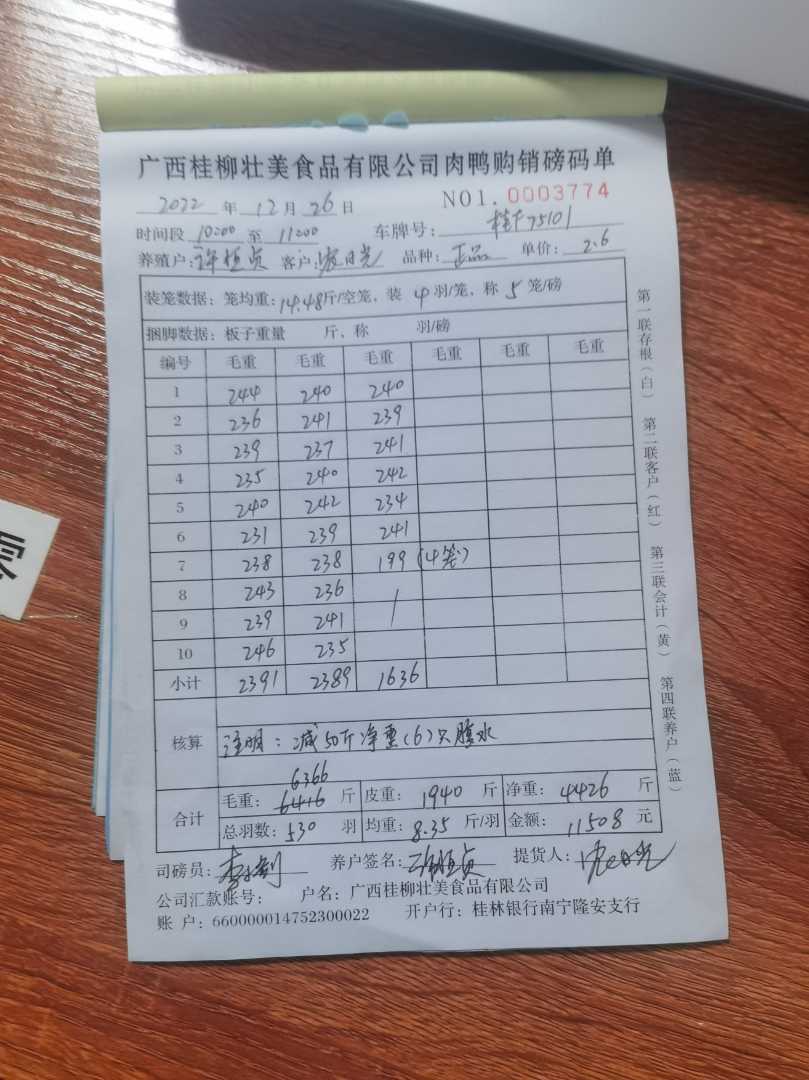 广西桂柳壮美食品有限公司肉鸭购销磅码单
2022 年 12 月 26 日 NO1. 0003774
时间段 10:00 至 11:00 车牌号: 桂F75101
养殖户: 许恒贞 客户: 日光 品种: 正品 单价: 2.6
装笼数据: 笼均重: 14.48斤/空笼, 装 4 羽/笼, 称 5 笼/磅
捆脚数据: 板子重量 斤, 称 羽/磅
编号 毛重 毛重 毛重 毛重 毛重 毛重
1 244 240 240
2 236 241 239
3 239 237 241
4 235 240 242
5 240 242 234
6 231 239 241
7 238 238 199 (4笼)
8 243 236 /
9 239 241
10 246 235
小计 2391 2389 1636
核算 注明: 减50斤净重(6)只腹水
6366
合计 毛重: 6416 斤 皮重: 1940 斤 净重: 4426 斤
总羽数: 530 羽 均重: 8.35 斤/羽 金额: 11508 元
司磅员: 养户签名: 许恒贞 提货人: 日光
公司汇款账号: 户名: 广西桂柳壮美食品有限公司
账 户: 660000014752300022 开户行: 桂林银行南宁隆安支行
第一联存根(白) 第二联客户(红) 第三联会计(黄) 第四联养户(蓝)